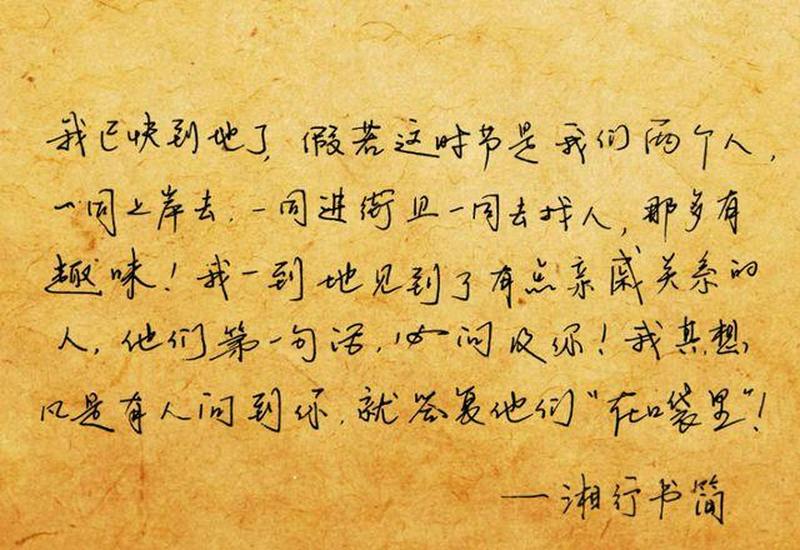 我已快到地了，假若这时节是我们两个人，
一同上岸去，一同进街且一同去找人，那多有
趣味！我一到地见到了有点亲戚关系的
人，他们第一句话，必问及你！我真想
凡是有人问到你，就答复他们“在口袋里”！
——湘行书简